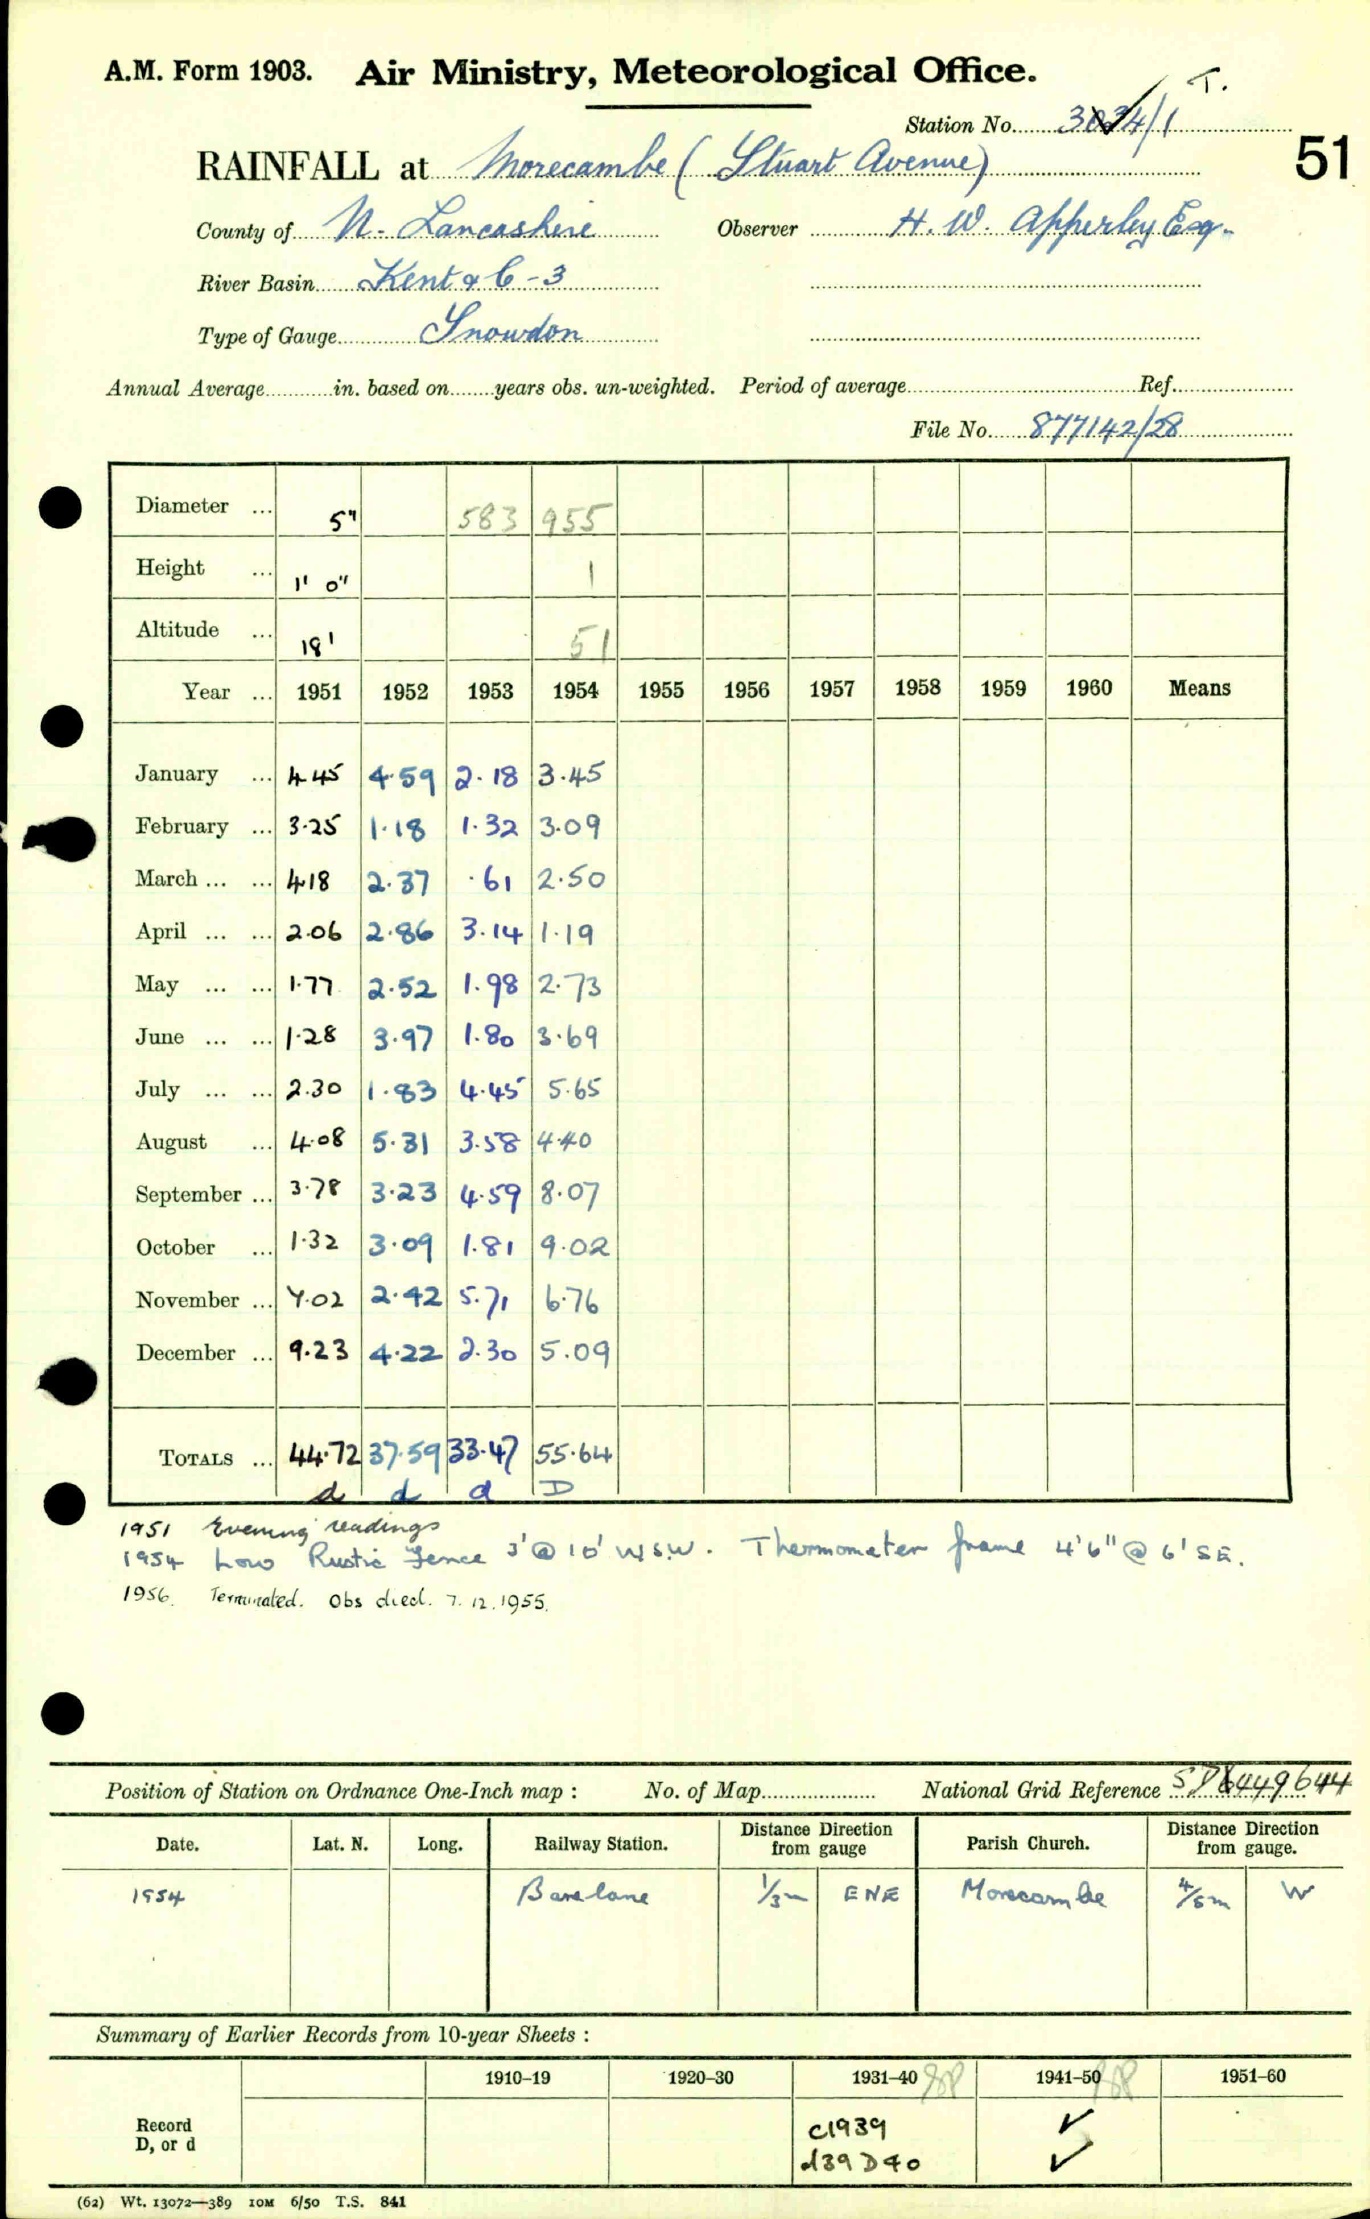 A.M. Form 1903. Air Ministry, Meteorological Office.
T.
Station No. 3034/1
51
RAINFALL at Morecambe (Stuart Avenue)
County of N. Lancashire Observer H. W. Apperley Esq.
River Basin Kent & C-3
Type of Gauge Snowdon
Annual Average in. based on years obs. un-weighted. Period of average Ref.
File No. 877142/28
Diameter ... 5" 583 955
Height ... 1' 0" 1
Altitude ... 18' 51
Year ... 1951 1952 1953 1954 1955 1956 1957 1958 1959 1960 Means
January ... 4.45 4.59 2.18 3.45
February ... 3.25 1.18 1.32 3.09
March ... ... 4.18 2.37 .61 2.50
April ... ... 2.06 2.86 3.14 1.19
May ... ... 1.77 2.52 1.98 2.73
June ... ... 1.28 3.97 1.80 3.69
July ... ... 2.30 1.83 4.45 5.65
August ... 4.08 5.31 3.58 4.40
September ... 3.78 3.23 4.59 8.07
October ... 1.32 3.09 1.81 9.02
November ... 7.02 2.42 5.71 6.76
December ... 9.23 4.22 2.30 5.09
TOTALS ... 44.72 37.59 33.47 55.64
d d d D
1951 Evening readings
1954 Low Rustic Fence 3' @ 10' WSW. Thermometer frame 4'6" @ 6' SE.
1956. Terminated. Obs died. 7.12.1955.
Position of Station on Ordnance One-Inch map : No. of Map National Grid Reference SD 6449644
Date. Lat. N. Long. Railway Station. Distance Direction from gauge Parish Church. Distance Direction from gauge.
1954 Barelane 1/3m ENE Morecambe 4/5m W
Summary of Earlier Records from 10-year Sheets :
1910–19 1920–30 1931–40 1941–50 1951–60
Record c1939 ✓
D, or d d39 D40 ✓
(62) Wt. 13072—389 10M 6/50 T.S. 841